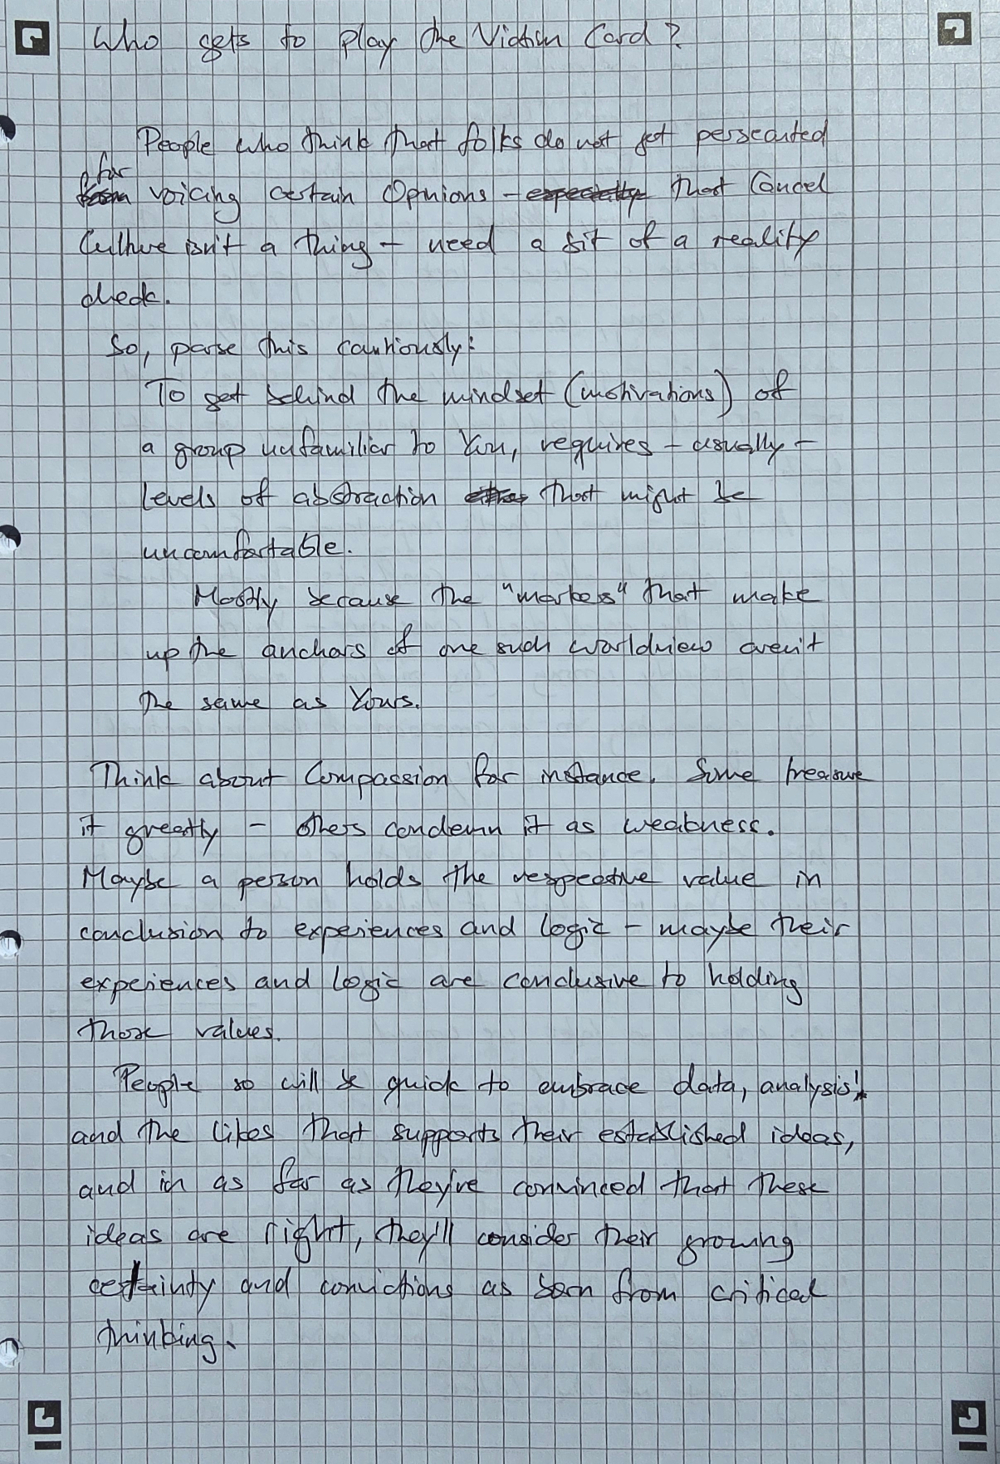 Who gets to play the Victim Card?
People who think that folks do not get persecuted
for
from voicing certain Opinions - especially that Cancel
Culture isn't a thing - need a bit of a reality
check.
So, parse this cautiously:
To get behind the mindset (motivations) of
a group unfamiliar to You, requires - usually -
levels of abstraction that might be
uncomfortable.
Mostly because the "markers" that make
up the anchors of one such worldview aren't
the same as Yours.
Think about Compassion for instance. Some treasure
it greatly - others condemn it as weakness.
Maybe a person holds the respective value in
conclusion to experiences and logic - maybe their
experiences and logic are conclusive to holding
those values.
People so will be quick to embrace data, analysis
and the likes that supports their established ideas,
and in as far as they're convinced that these
ideas are right, they'll consider their growing
certainty and convictions as born from critical
thinking.